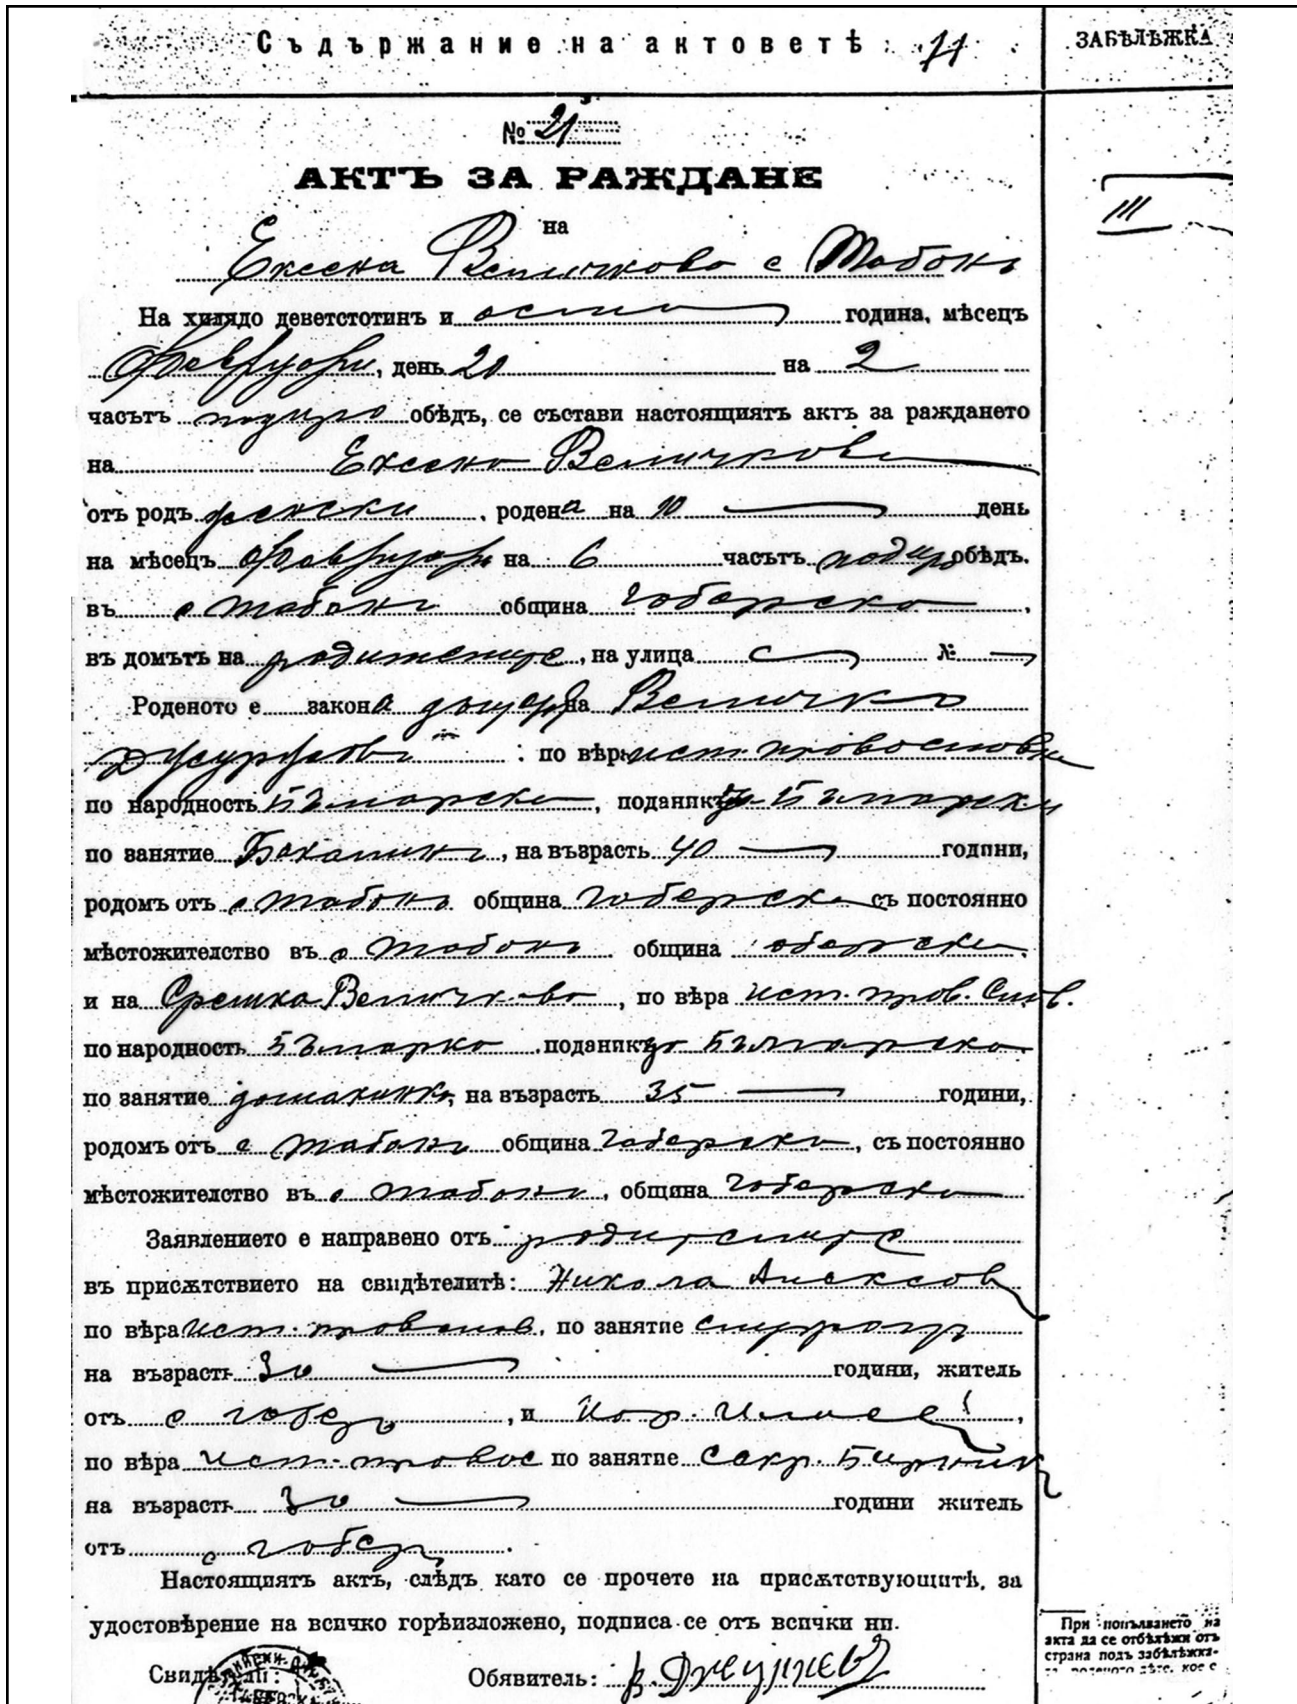 Съдържание на актоветѣ 11
ЗАБѢЛѢЖКА
№ 21
АКТЪ ЗА РАЖДАНЕ
III
на
Ексена Величкова с Табанъ
На хилядо деветстотинъ и осма година, мѣсецъ
Февруари, день 20 на 2
часътъ подиръ обѣдъ, се състави настоящиятъ актъ за раждането
на Ексена Величкова
отъ родъ женски, родена на 10 день
на мѣсецъ Февруари на 6 часътъ подиръ обѣдъ.
въ с Табанъ община Гоберска,
въ домътъ на родителите, на улица с №
Роденото е закона дъщеря на Величко
Джурджовъ : по вѣра ист. православна
по народность Българска, поданикъ Български
по занятие Бакалинъ, на възрасть 40 години,
родомъ отъ с Табанъ община Гоберска съ постоянно
мѣстожителство въ с Табанъ община Гоберска.
и на Срешка Величкова, по вѣра ист. прав. Слав.
по народность Българка поданикъ Българска
по занятие домакинка, на възрасть 35 години,
родомъ отъ с Табанъ община Гоберска, съ постоянно
мѣстожителство въ с Табанъ, община Гоберска
Заявлението е направено отъ родителите
въ присѫтствието на свидѣтелитѣ: Никола Алексов
по вѣра ист. православ, по занятие
на възрасть 30 години, житель
отъ с Гоберъ, и Илиев,
по вѣра ист. правос по занятие секр. Бирник
на възрасть 30 години житель
отъ с Гоберъ.
Настоящиятъ актъ, слѣдъ като се прочете на присѫтствующитѣ, за
удостовѣрение на всичко горѣизложено, подписа се отъ всички ни.
Свидѣтели: Обявитель: В. Джуржевъ
При попълването на
акта да се отбѣлѣжи отъ
страна подъ забѣлѣжка-
та роденото дѣте, кое е